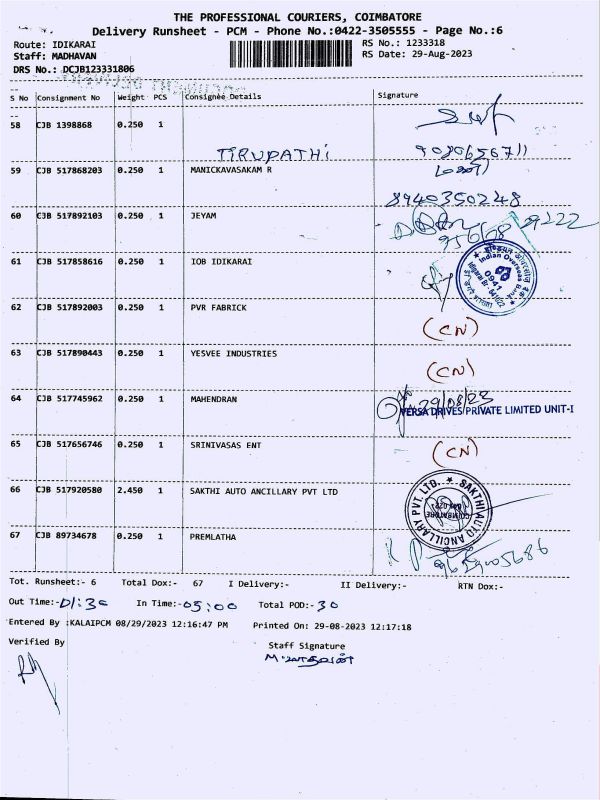 THE PROFESSIONAL COURIERS, COIMBATORE
Delivery Runsheet - PCM - Phone No.:0422-3505555 - Page No.:6
Route: IDIKARAI
RS No.: 1233318
Staff: MADHAVAN
RS Date: 29-Aug-2023
DRS No.: DCJB123331806
S No Consignment No Weight PCS Consignee Details Signature
58 CJB 1398868 0.250 1
TIRUPATHI
59 CJB 517868203 0.250 1 MANICKAVASAKAM R
8940350248
60 CJB 517892103 0.250 1 JEYAM
61 CJB 517858616 0.250 1 IOB IDIKARAI
Indian Overseas Bank
0941
62 CJB 517892003 0.250 1 PVR FABRICK
(CN)
63 CJB 517890443 0.250 1 YESVEE INDUSTRIES
(CN)
64 CJB 517745962 0.250 1 MAHENDRAN
29/08/23
VERSA DRIVES PRIVATE LIMITED UNIT-I
65 CJB 517656746 0.250 1 SRINIVASAS ENT
(CN)
66 CJB 517920580 2.450 1 SAKTHI AUTO ANCILLARY PVT LTD
SAKTHI AUTO ANCILLARY PVT. LTD.
COIMBATORE
67 CJB 89734678 0.250 1 PREMLATHA
Tot. Runsheet:- 6 Total Dox:- 67 I Delivery:- II Delivery:- RTN Dox:-
Out Time:-01:30 In Time:-05:00 Total POD:-30
Entered By :KALAIPCM 08/29/2023 12:16:47 PM Printed On: 29-08-2023 12:17:18
Verified By
Staff Signature